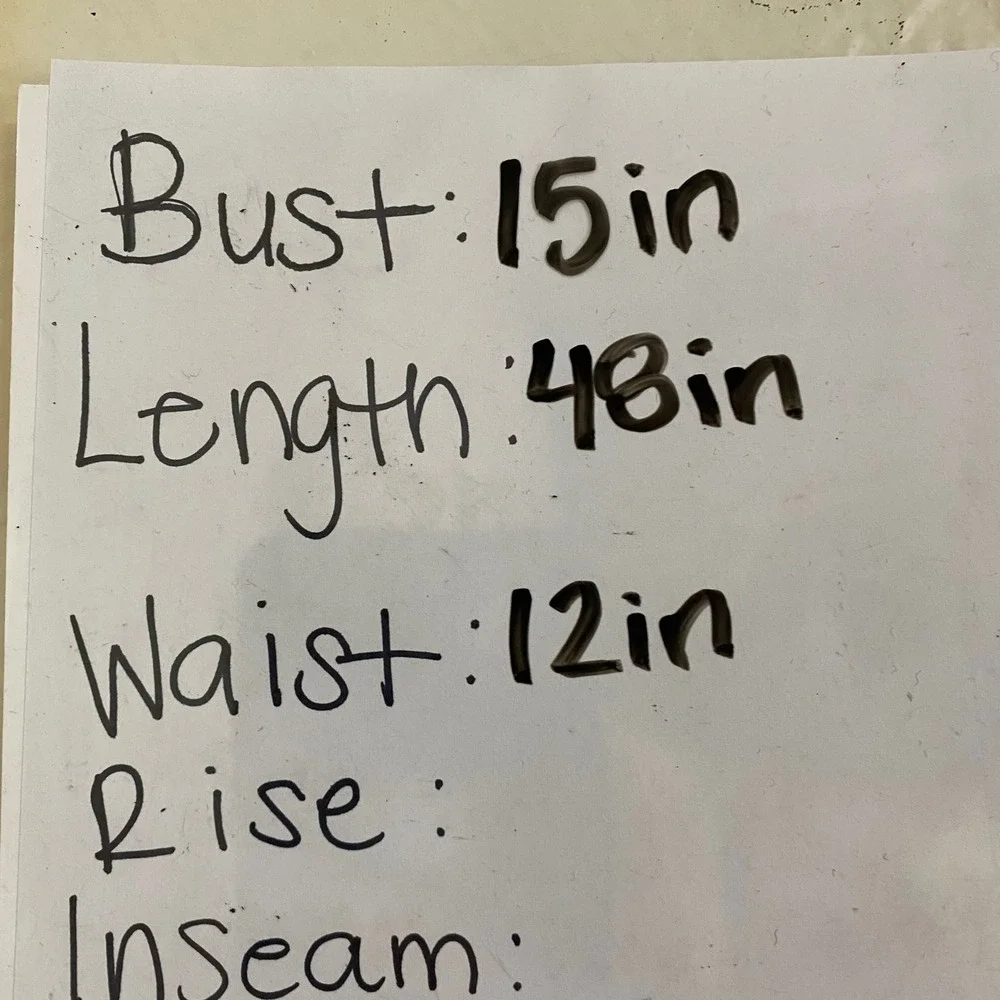 Bust: 15in
Length: 48in
Waist: 12in
Rise:
Inseam: